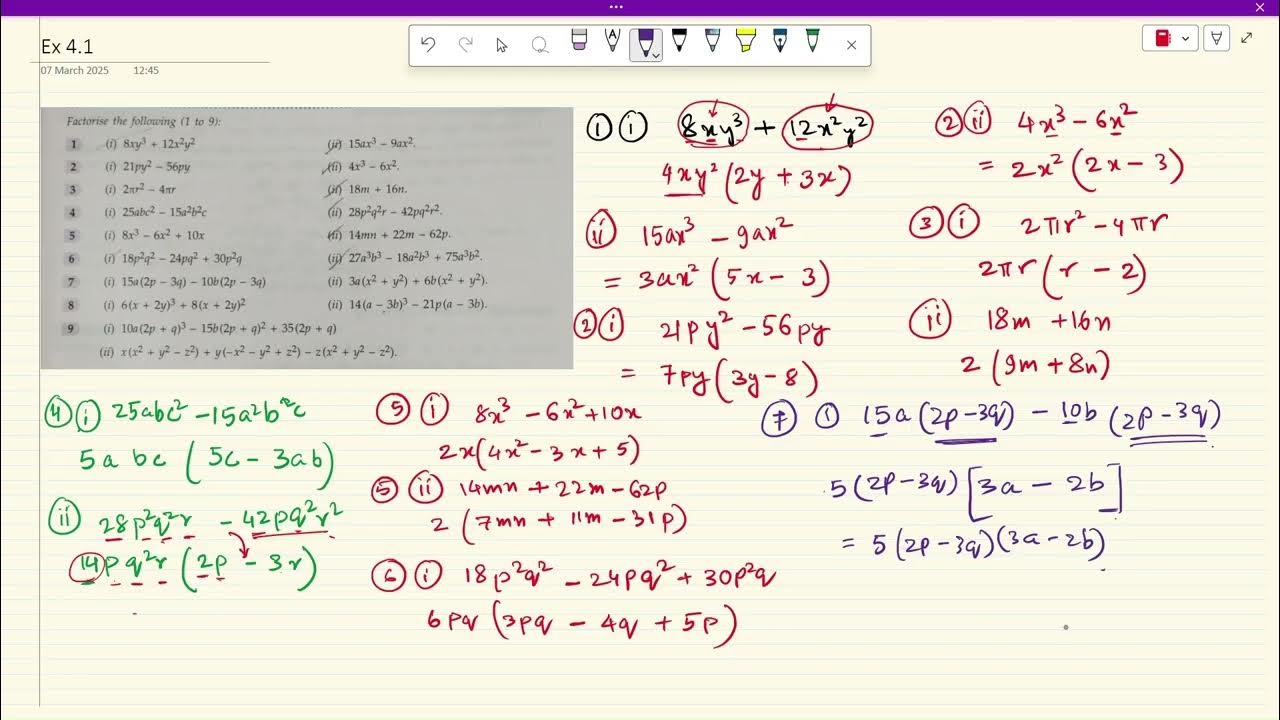 Ex 4.1
07 March 2025 12:45
Factorise the following (1 to 9):
1 (i) 8xy³ + 12x²y² (ii) 15ax³ − 9ax².
2 (i) 21py² − 56py (ii) 4x³ − 6x².
3 (i) 2πr² − 4πr (ii) 18m + 16n.
4 (i) 25abc² − 15a²b²c (ii) 28p²q²r − 42pq²r².
5 (i) 8x³ − 6x² + 10x (ii) 14mn + 22m − 62p.
6 (i) 18p²q² − 24pq² + 30p²q (ii) 27a³b³ − 18a²b³ + 75a³b².
7 (i) 15a(2p − 3q) − 10b(2p − 3q) (ii) 3a(x² + y²) + 6b(x² + y²).
8 (i) 6(x + 2y)³ + 8(x + 2y)² (ii) 14(a − 3b)³ − 21p(a − 3b).
9 (i) 10a(2p + q)³ − 15b(2p + q)² + 35(2p + q)
(ii) x(x² + y² − z²) + y(−x² − y² + z²) − z(x² + y² − z²).
① ⓘ 8xy³ + 12x²y²
4xy² (2y + 3x)
ⓘⓘ 15ax³ − 9ax²
= 3ax² (5x − 3)
② ⓘ 21py² − 56py
= 7py (3y − 8)
② ii 4x³ − 6x²
= 2x² (2x − 3)
③ i 2πr² − 4πr
2πr (r − 2)
ii 18m + 16n
2 (9m + 8n)
④ i 25abc² − 15a²b²c
5abc (5c − 3ab)
ii 28p²q²r − 42pq²r²
14pq²r (2p − 3r)
⑤ i 8x³ − 6x² + 10x
2x (4x² − 3x + 5)
⑤ ii 14mn + 22m − 62p
2 (7mn + 11m − 31p)
⑥ i 18p²q² − 24pq² + 30p²q
6pq (3pq − 4q + 5p)
⑦ i 15a (2p − 3q) − 10b (2p − 3q)
5 (2p − 3q) [3a − 2b]
= 5 (2p − 3q) (3a − 2b)